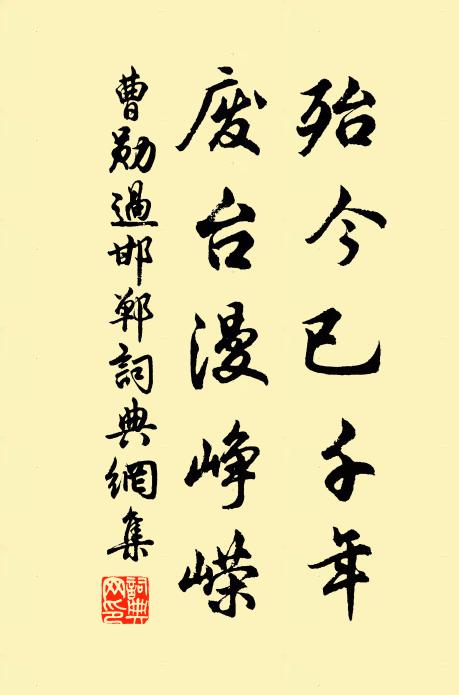 殆今已千年
废台漫峥嵘
曹勛過邯鄲詞典網集
詞典網印